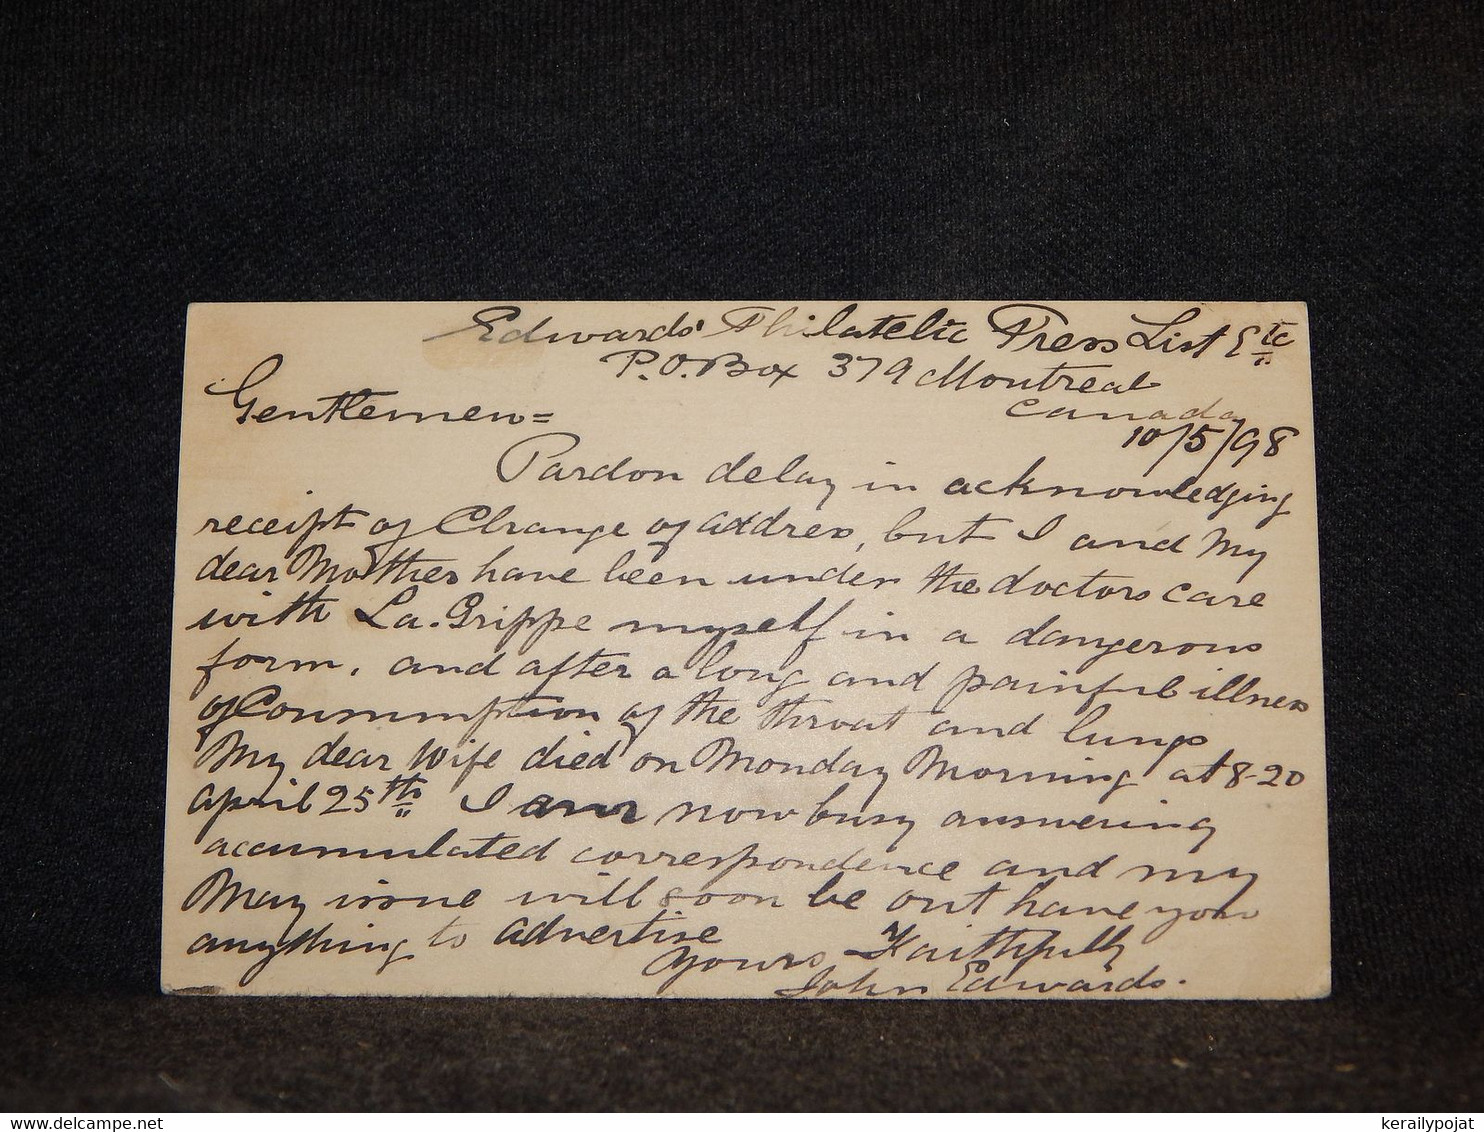 Edwards' Philatelic Press List Etc
P.O. Box 379 Montreal
Canada
10/5/98
Gentlemen=
Pardon delay in acknowledging
receipt of Change of address, but I and My
dear Mother have been under the doctors care
with La. Grippe myself in a dangerous
form, and after a long and painful illness
of Consumption of the throat and lungs
My dear Wife died on Monday Morning at 8-20
April 25th I am now busy answering
accumulated correspondence and my
May issue will soon be out have you
anything to advertise
Yours Faithfully
John Edwards.
kerailypojat